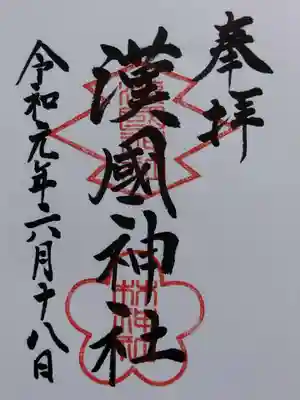 奉拝
漢國神社
林神社
令和元年六月十八日